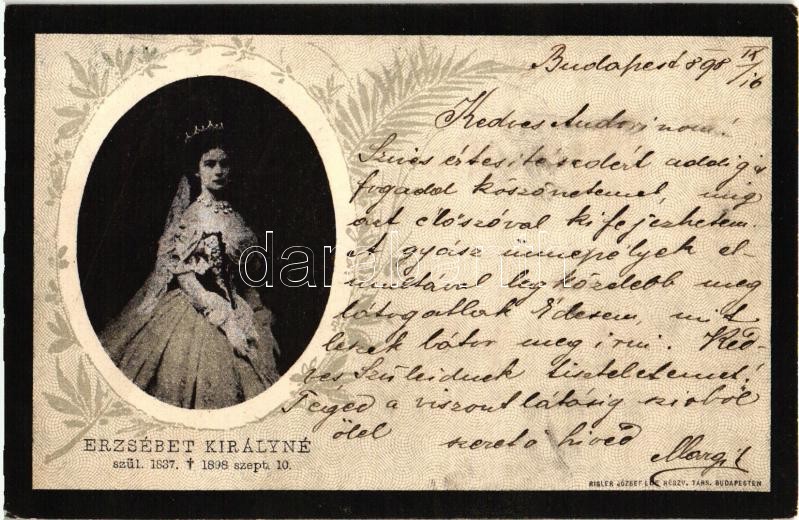 Budapest 898 IX/16
Kedves Andorinom!
Szíves értesítésedért addig is
fogadd köszönetemet, míg
azt élőszóval kifejezhetem.
A gyász ünnepélyek el-
multával legközelebb meg
látogatlak Édesem, mit
leszek bátor megirni. Ked-
ves Szüleidnek tiszteletemet!
Téged a viszontlátásig szivből
ölel szerető hived
Margit
ERZSÉBET KIRÁLYNÉ
szül. 1837. † 1898 szept. 10.
RIGLER JÓZSEF EDE RÉSZV. TÁRS. BUDAPESTEN